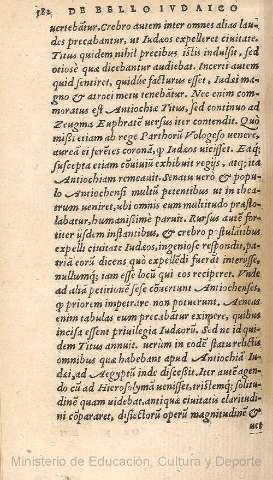 582 DE BELLO IVDAICO
uertebãtur. Crebro autem inter omnes alias lau-
des precabantur, ut Iudæos expelleret ciuitate.
Titus quidem nihil precibus istis indulsit, sed
otiose quæ dicebantur audiebat. Incerti autem
quid sentiret, quidúe facturus esset, Iudæi ma-
gno & atroci metu tenebãtur. Nec enim com-
moratus est Antiochiæ Titus, sed continuo ad
Zeugma Euphratẽ uersus iter contendit. Quò
missi etiam ab rege Parthorũ Vologeso uenere,
aureã ei ferẽtes coronã, ꝙ Iudæos uicisset. Eaq́;
suscepta etiam cõuiuiũ exhibuit regijs, atq; ita
Antiochiam remeauit. Senatu uero & popu-
lo Antiochensi multũ petentibus ut in thea-
trum ueniret, ubi omnis eum multitudo præsto-
labatur, humanissimè paruit. Rursus autẽ for-
titer ijsdem instantibus, & crebro postulãtibus
expelli ciuitate Iudæos, ingeniose respondit, pa-
triã eorũ dicens quò expellẽdi fuerãt interijsse,
nullumq́; iam esse locũ qui eos reciperet. Vnde
ad aliã petitionẽ sese cõuertunt Antiochenses,
ꝙ priorem impetrare non potuerunt. Aeneas
enim tabulas eum precabãtur eximere, quibus
incisa essent priuilegia Iudæorũ. Sed ne id qui-
dem Titus annuit. uerùm in eodẽ statu relictis
omnibus quæ habebant apud Antiochiã Iu-
dæi, ad Aegyptũ inde discessit. Iter autẽ agen-
do cũ ad Hierosolymã uenisset, tristemq́; solitu-
dinẽ quam uidebat, antiquæ ciuitatis claritudi-
ni cõpararet, disiectorũ operũ magnitudinẽ &
uet
Ministerio de Educación, Cultura y Deporte